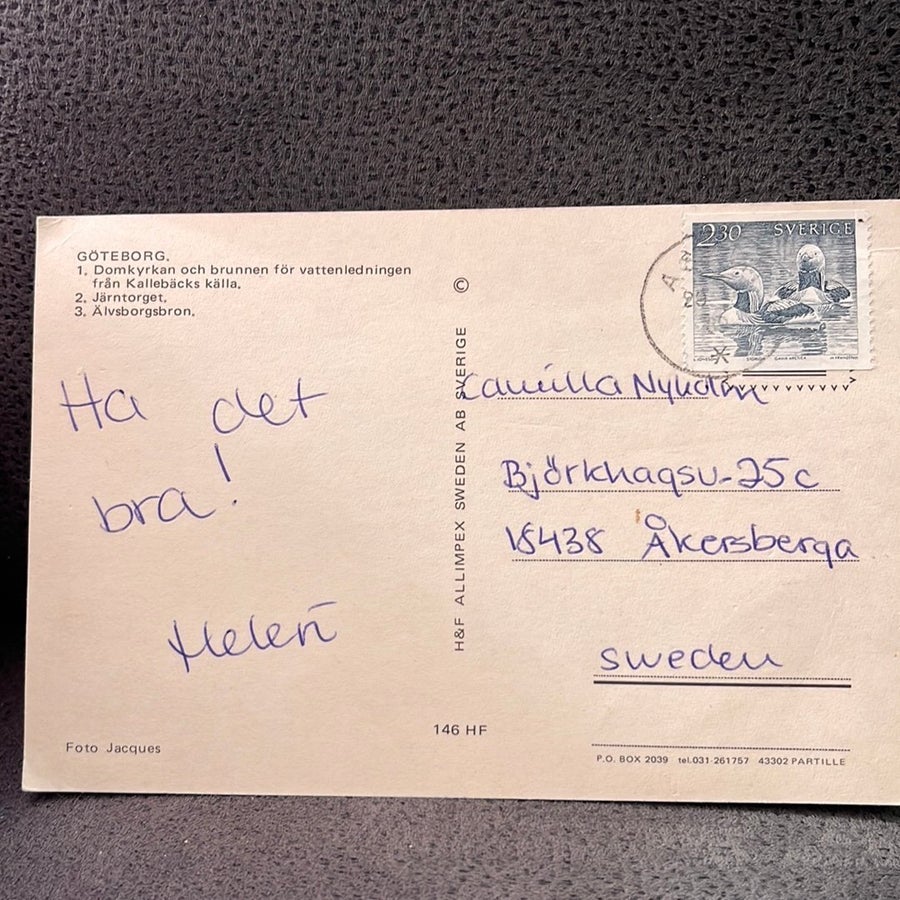 GÖTEBORG.
1. Domkyrkan och brunnen för vattenledningen
från Kallebäcks källa.
2. Järntorget.
3. Älvsborgsbron.
Ha det
bra!
Helen
Foto Jacques
©
H&F ALLIMPEX SWEDEN AB SVERIGE
146 HF
230 SVERIGE
Camilla Nyholm
Björkhagsv. 25c
18438 Åkersberga
sweden
P.O. BOX 2039 tel.031-261757 43302 PARTILLE